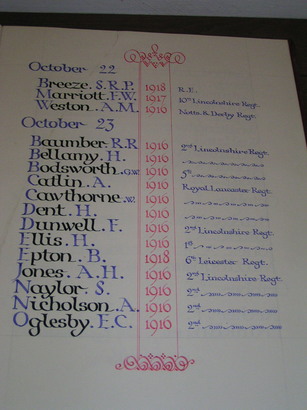 October 22
Breeze. S.R.P. 1918 R.E.
Marriott. F.W. 1917 10th Lincolnshire Regt.
Weston. A.M. 1916 Notts. & Derby Regt.
October 23
Baumber. R.R 1916 2nd Lincolnshire Regt.
Bellamy. H. 1916
Bodsworth. G.W 1916 5th
Catlin. A. 1916 Royal Lancaster Regt.
Cawthorne. W. 1916
Dent. H. 1916
Dunwell. F. 1916 2nd Lincolnshire Regt.
Ellis. H. 1916 1st
Epton. B. 1918 6th Leicester Regt.
Jones. A.H. 1916 2nd Lincolnshire Regt.
Naylor. S. 1916 2nd
Nicholson. A. 1916 2nd
Oglesby. E.C. 1916 2nd